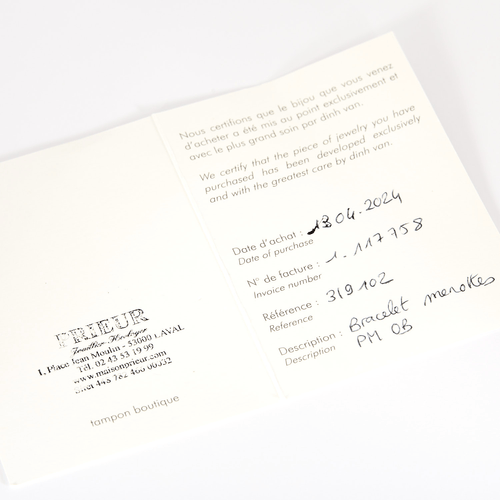 PRIEUR
Joaillier Horloger
1, Place Jean Moulin - 53000 LAVAL
Tél. 02 43 53 19 99
www.maisonprieur.com
tampon boutique
Nous certifions que le bijou que vous venez
d'acheter a été mis au point exclusivement et
avec le plus grand soin par dinh van.
We certify that the piece of jewelry you have
purchased has been developed exclusively
and with the greatest care by dinh van.
Date d'achat : 13 04.2024
Date of purchase
N° de facture : 1. 117758
Invoice number
Référence : 319102
Reference
Description : Bracelet menottes
Description PM OB